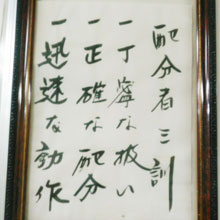 配分者三訓
一丁寧な扱い
一正確な配分
一迅速な効作